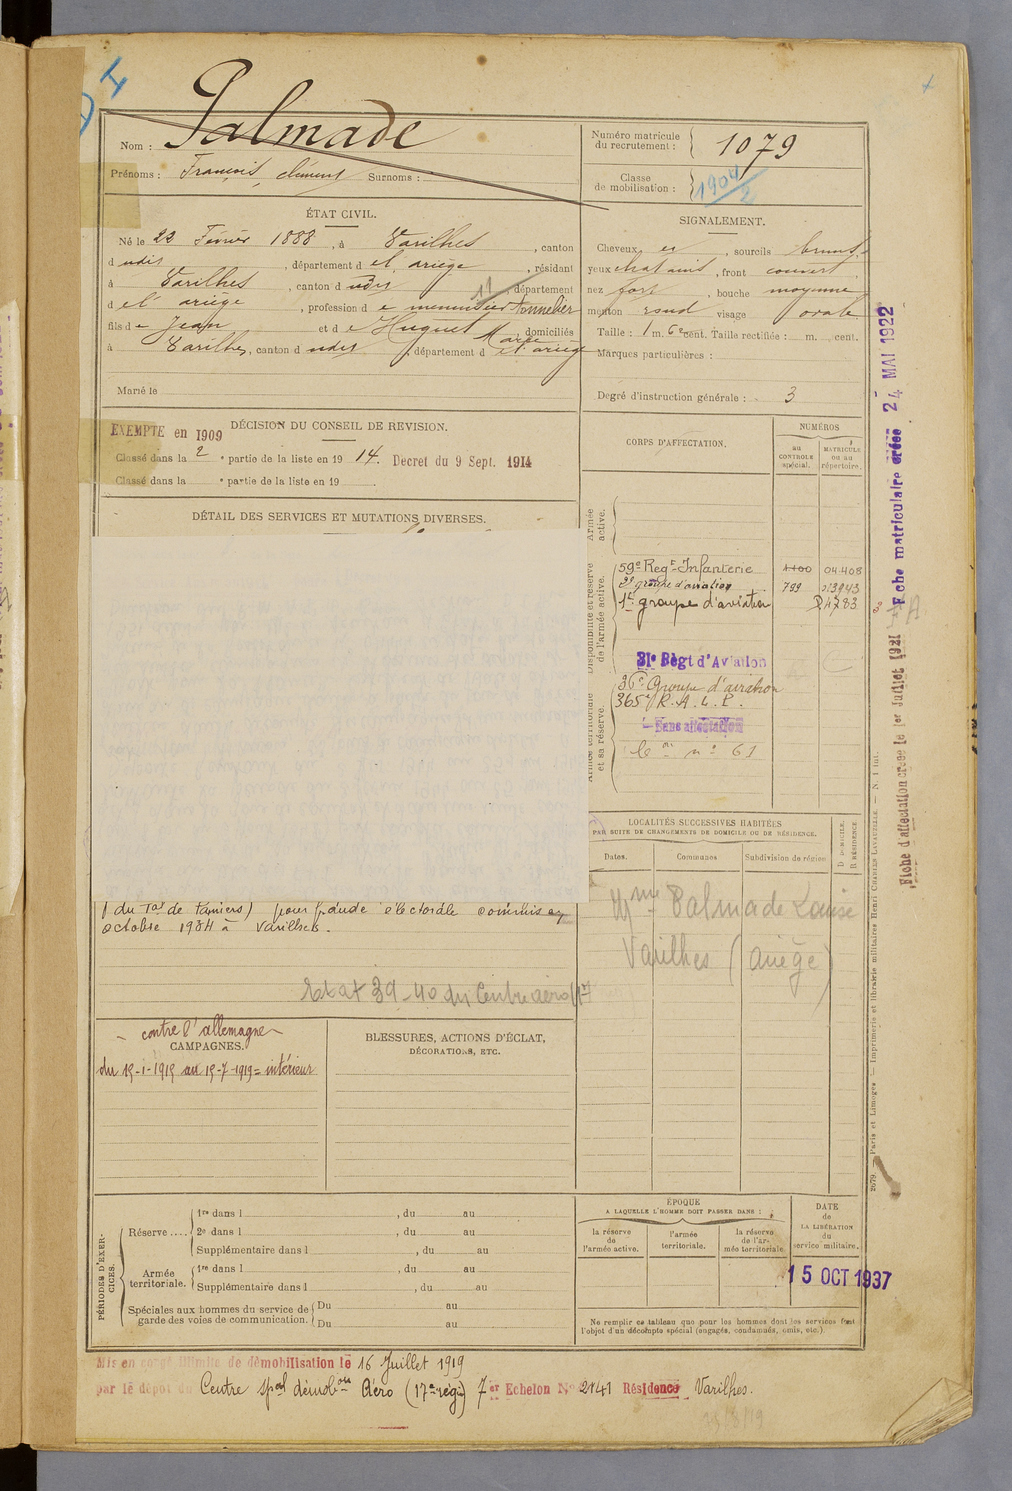 Nom : Palmade
Prénoms : François clément Surnoms :
Numéro matricule du recrutement : 1079
Classe de mobilisation : 1904/2
ÉTAT CIVIL.
Né le 22 Février 1888, à Varilhes, canton
d udit, département d el ariège, résidant
à Varilhes, canton d udit, département
d el ariège, profession d e menuisier tonnelier
fils d e Jean et d e Huguet Marie domiciliés
à Varilhes, canton d udit, département d el ariège
Marié le
SIGNALEMENT.
Cheveux et, sourcils bruns,
yeux chatains, front couvert,
nez fort, bouche moyenne
menton rond visage ovale
Taille : 1 m. 62 cent. Taille rectifiée : m. cent.
Marques particulières :
Degré d'instruction générale : 3
DÉCISION DU CONSEIL DE REVISION.
EXEMPTÉ en 1909
Classé dans la 2e partie de la liste en 1914. Decret du 9 Sept. 1914
Classé dans la e partie de la liste en 19
DÉTAIL DES SERVICES ET MUTATIONS DIVERSES.
CORPS D'AFFECTATION.
NUMÉROS
au CONTROLE spécial.
MATRICULE ou au répertoire.
Armée active.
Disponibilité et réserve de l'armée active.
59e Regt Infanterie 1100 04.408
2e groupe d'aviation 799 013943
1er groupe d'aviation 24783
31e Régt d'Aviation
Armée territoriale et sa réserve.
36e Groupe d'aviation
365e R.A.L.P.
Sans affectation
n° 61
LOCALITÉS SUCCESSIVES HABITÉES
PAR SUITE DE CHANGEMENTS DE DOMICILE OU DE RÉSIDENCE.
Dates.
Communes
Subdivision de région
D DOMICILE.
R RÉSIDENCE
Mme Palmade Louise
Varilhes (Ariège)
du Tal de Pamiers) pour fraude électorale commis en
octobre 1934 à Varilhes.
Etat 39-40 du Centre aéro
contre l'allemagne
CAMPAGNES.
du 15-1-1915 au 15-7-1919 = intérieur
BLESSURES, ACTIONS D'ÉCLAT,
DÉCORATIONS, ETC.
PÉRIODES D'EXERCICES.
Réserve....
1re dans l , du au
2e dans l , du au
Supplémentaire dans l , du au
Armée territoriale.
1re dans l , du au
Supplémentaire dans l , du au
Spéciales aux hommes du service de garde des voies de communication.
Du au
Du au
ÉPOQUE
A LAQUELLE L'HOMME DOIT PASSER DANS :
la réserve de l'armée active.
l'armée territoriale.
la réserve de l'armée territoriale
DATE de LA LIBÉRATION du service militaire.
15 OCT 1937
Ne remplir ce tableau que pour les hommes dont les services font
l'objet d'un décompte spécial (engagés, condamnés, omis, etc.)
Mis en congé illimité de démobilisation le 16 Juillet 1919
par le dépôt du Centre spal démobon Aéro (17e régn) 7er Echelon No 2141 Résidence Varilhes.
Fiche matriculaire créée 24 MAI 1922
Fiche d'affectation créée le 1er Juillet 1921
2679. — Paris et Limoges. — Imprimerie et librairie militaires Henri CHARLES-LAVAUZELLE. — N. 1 int.